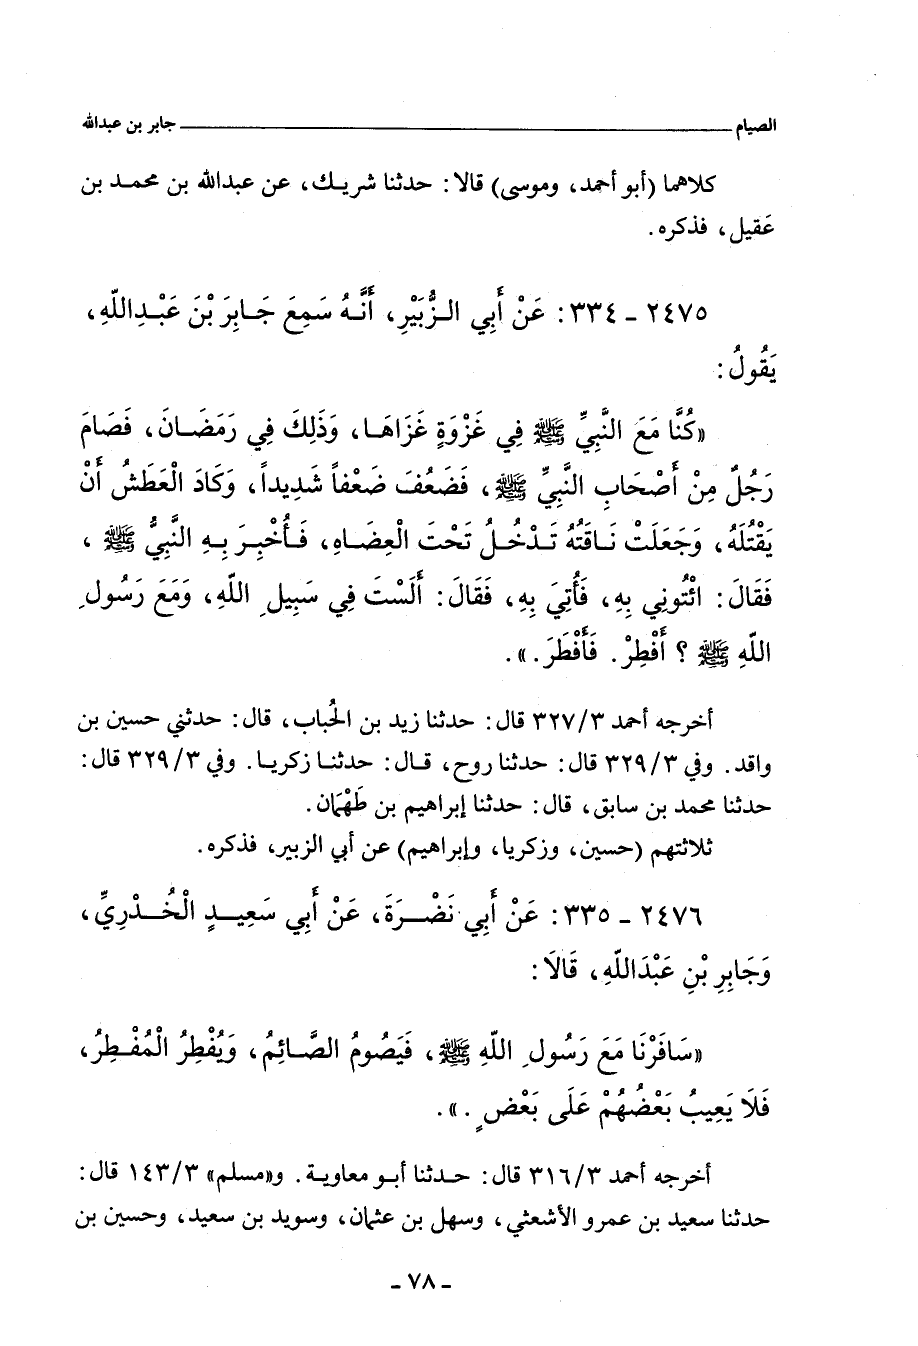 الصيام ــــــــــــــــــــــــــــــــــــ جابر بن عبدالله
كلاهما (أبو أحمد، وموسى) قالا: حدثنا شريك، عن عبدالله بن محمد بن
عَقيل، فذكره.
٢٤٧٥ - ٣٣٤: عَنْ أَبِي الزُّبَيْرِ، أَنَّهُ سَمِعَ جَابِرَ بْنَ عَبْدِاللّهِ،
يَقُولُ:
«كُنَّا مَعَ النَّبِيِّ ﷺ فِي غَزْوَةٍ غَزَاهَا، وَذَلِكَ فِي رَمَضَانَ، فَصَامَ
رَجُلٌ مِنْ أَصْحَابِ النَّبِيِّ ﷺ، فَضَعُفَ ضَعْفاً شَدِيداً، وَكَادَ الْعَطَشُ أَنْ
يَقْتُلَهُ، وَجَعَلَتْ نَاقَتُهُ تَدْخُلُ تَحْتَ الْعِضَاهِ، فَأُخْبِرَ بِهِ النَّبِيُّ ﷺ،
فَقَالَ: ائْتُونِي بِهِ، فَأُتِيَ بِهِ، فَقَالَ: أَلَسْتَ فِي سَبِيلِ اللّهِ، وَمَعَ رَسُولِ
اللّهِ ﷺ ؟ أَفْطِرْ. فَأَفْطَرَ.».
أخرجه أحمد ٣٢٧/٣ قال: حدثنا زيد بن الحُباب، قال: حدثني حسين بن
واقد. وفي ٣٢٩/٣ قال: حدثنا روح، قال: حدثنا زكريا. وفي ٣٢٩/٣ قال:
حدثنا محمد بن سابق، قال: حدثنا إبراهيم بن طَهْمان.
ثلاثتهم (حسين، وزكريا، وإبراهيم) عن أبي الزبير، فذكره.
٢٤٧٦ - ٣٣٥: عَنْ أَبِي نَضْرَةَ، عَنْ أَبِي سَعِيدٍ الْخُدْرِيِّ،
وَجَابِرِ بْنِ عَبْدَاللّهِ، قَالَا:
«سَافَرْنَا مَعَ رَسُولِ اللّهِ ﷺ، فَيَصُومُ الصَّائِمُ، وَيُفْطِرُ الْمُفْطِرُ،
فَلَا يَعِيبُ بَعْضُهُمْ عَلَى بَعْضٍ.».
أخرجه أحمد ٣١٦/٣ قال: حدثنا أبو معاوية. و«مسلم» ١٤٣/٣ قال:
حدثنا سعيد بن عمرو الأشعثي، وسهل بن عثمان، وسويد بن سعيد، وحسين بن
- ٧٨ -